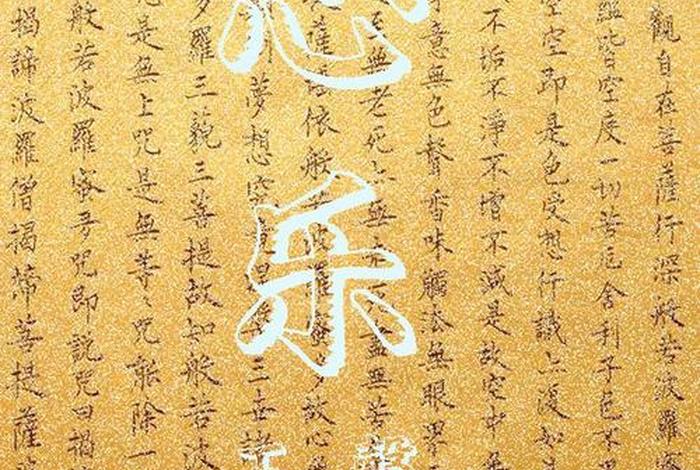 觀自在菩薩行深般若波羅
蘊皆空度一切苦厄舍利子色不
空空即是色受想行識亦復如
不垢不淨不增不減是故空中
意無色聲香味觸法無眼界
至無老死亦無老死盡無苦
薩依般若波羅蜜多故心
夢想究三世諸
多羅三藐三菩提故知般若波
是無上咒是無等々咒能除一
般若波羅蜜多咒即説咒曰揭
揭諦波羅僧揭諦菩提薩
乐